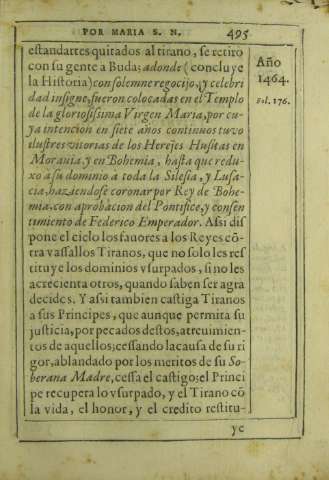 POR MARIA S. N. 495
estandartes quitados al tirano, se retiro
con su gente a Buda; adonde (concluye
la Historia) con solemne regocijo, y celebri
dad insigne, fueron colocadas en el Templo
de la gloriosissima Virgen Maria, por cu-
ya intencion en siete años continuos tuvo
ilustres vitorias de los Herejes Husitas en
Morauia, y en Bohemia, hasta que redu-
xo a su dominio a toda la Silesia, y Lusa-
cia, haziendose coronar por Rey de Bohe-
mia, con aprobacion del Pontifice, y consen
timiento de Federico Emperador. Assi dis
pone el cielo los fauores a los Reyes cō-
tra vassallos Tiranos, que no solo les res
tituye los dominios vsurpados, si no les
acrecienta otros, quando saben ser agra
decidcs. Y assi tambien castiga Tiranos
a sus Principes, que aunque permita su
justicia, por pecados destos, atreuimien-
tos de aquellos; cessando la causa de su ri
gor, ablandado por los meritos de su So-
berana Madre, cessa el castigo: el Princi
pe recupera lo vsurpado, y el Tirano cō
la vida, el honor, y el credito restitu-
yc
Año
1464.
Fol. 176.